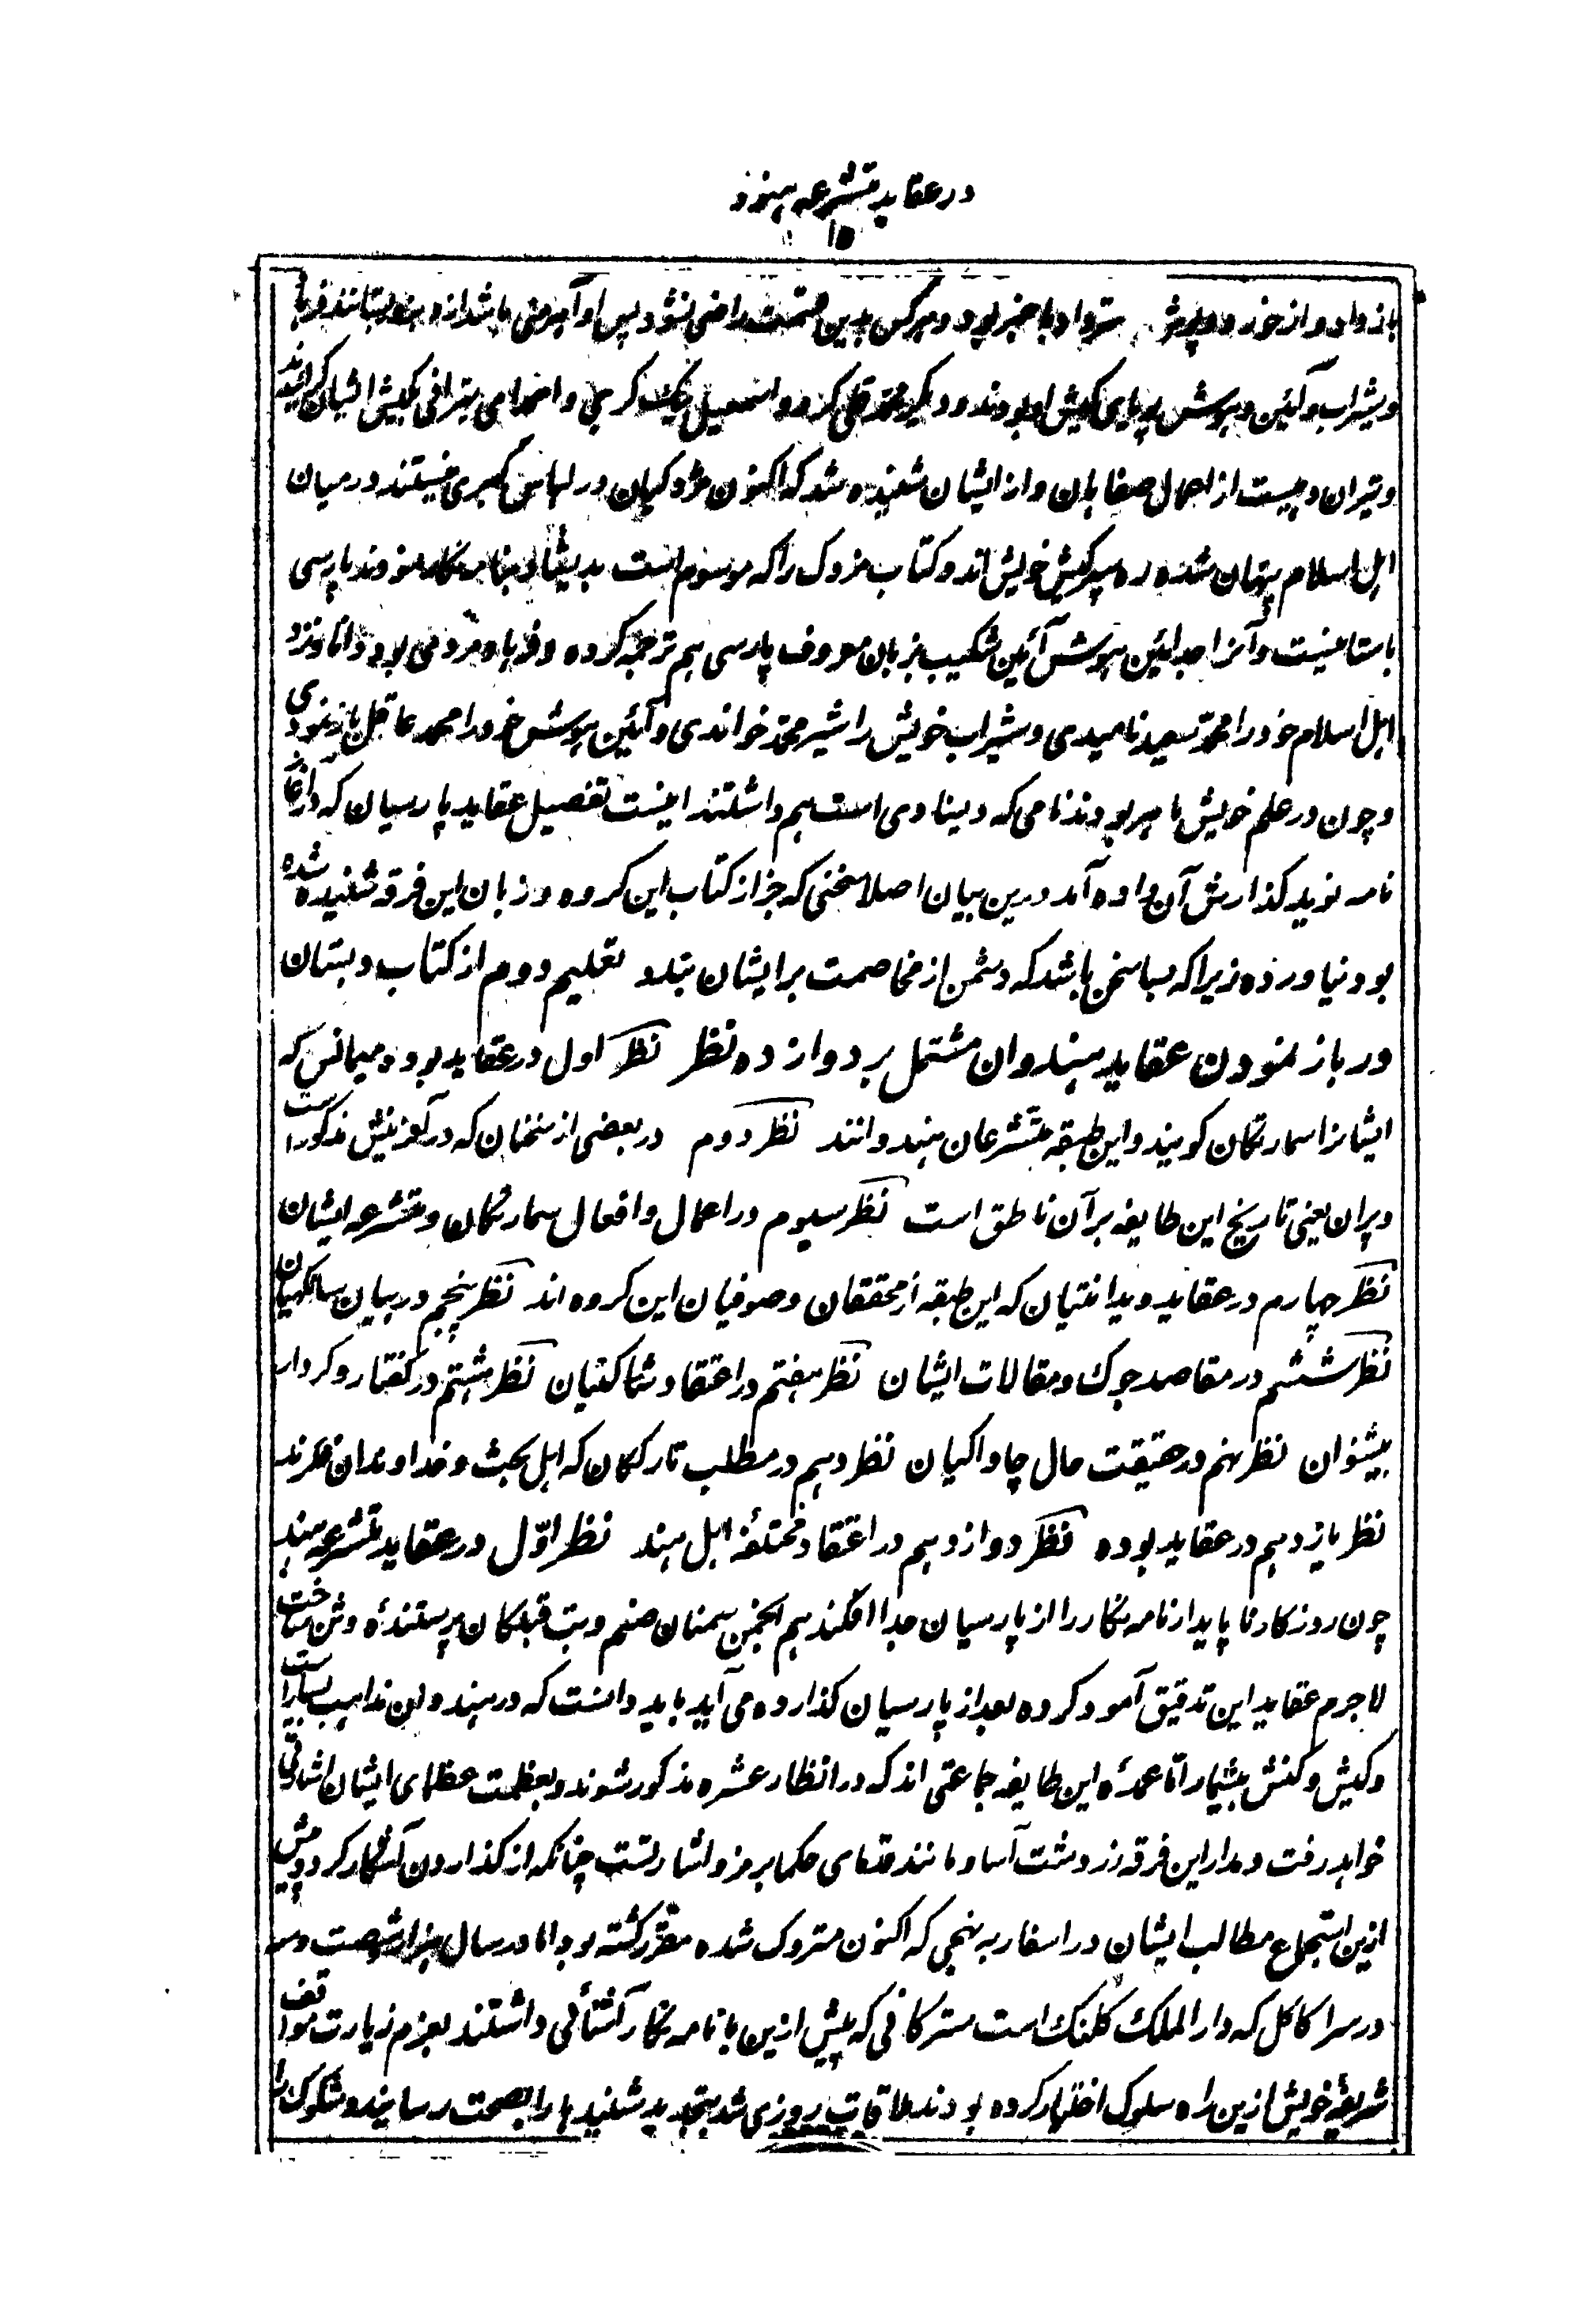 در عقاید متشرعه هنود
۱۵
باز داد و از خورد و پوشش ستر او با خبر بود و هر کس بدین قسمت راضی نشود پس او آهرمنی باشد از و بزور بستانند فرهاد
و شیراب و آئین هوش پویای کیش او بودند و دیگر محمد قلی کرد و اسمعیل بیک کرجی و احمدای تیرانی بکیش ایشان گرائیدند
و تیران دهیست از اعمال صفاهان و از ایشان شنیده شد که اکنون مزدکیان در لباس گبری نیستند در میان
اهل اسلام پنهان شده ره سپر کیش خویش اند و کتاب مزدک را که موسوم است بدیسناد بنامه نگار نمودند پارسی
باستانیست و آنرا جد آئین هوش آئین شکیب بزبان معروف پارسی هم ترجمه کرده و فرهاد مردمی بود دانا و نزد
اهل اسلام خود را محمد سعید نامیدی و شیراب خویش را شیر محمد خواندی و آئین هوش خود را محمد عاقل باز نمودی
و چون در علم خویش ماهر بودند نامی که دیسنادی است هم داشتند اینست تفصیل عقاید پارسیان که در آغاز
نامه نوید گذارش آن داده آمد درین بیان اصلا سخنی که جز از کتاب این گروه و زبان این فرقه شنیده شده
بود نیاورده زیرا که بسا سخن باشد که دشمن از مخاصمت بر ایشان بندد تعلیم دوم از کتاب دبستان
در باز نمودن عقاید هندوان مشتمل بر دوازده نظر نظر اول در عقاید بوده میمانس که
ایشانرا سمارتکان گویند و این طبقه متشرعان هندوانند نظر دوم در بعضی از سخنان که در آفرینش مذکور است
و پران یعنی تاریخ این طایفه بر آن ناطق است نظر سیوم در اعمال و افعال سمارتکان و متشرعه ایشان
نظر چهارم در عقاید ویدانتیان که این طبقه از محققان و صوفیان این گروه اند نظر پنجم در بیان سانکهیان
نظر ششم در مقاصد جوک و مقالات ایشان نظر هفتم در اعتقاد شاکتیان نظر هشتم در گفتار و کردار
بیشنوان نظر نهم در حقیقت حال چارواکیان نظر دهم در مطلب تارککان که اهل بحث و خداوندان فکرند
نظر یازدهم در عقاید بوده نظر دوازدهم در اعتقاد مختلفه اهل هند نظر اوّل در عقاید متشرعه هند
چون روزگار ناپایدار نامه نگار را از پارسیان جدا افکند هم انجمن سمنان صنم و بت قبلگان پرستندهٔ وثن ساخت
لاجرم عقاید این تدقیق آمود گروه بعد از پارسیان گذارده می آید باید دانست که در هندوان مذاهب بسیار است
و کیش و کنش بیشمار اما عمدهٔ این طایفه جماعتی اند که در انظار عشره مذکور شوند و بعظمت عظمای ایشان اشارتی
خواهد رفت و مدار این فرقه زردشت آسا و مانند قدمای حکما بر رمز و اشارتست چنانکه از گذاردن آشکار گردد پیش
ازین استجماع مطالب ایشان در اسفار به نهجی که اکنون متروک شده مقرر گشته بود اما در سال هزار و شصت و سه
در سرا کاکل که دار الملک کلنک است سترکانی که پیش ازین با نامه نگار آشنائی داشتند بعزم زیارت مواقف
شریفهٔ خویش ازین راه سلوک اختیار کرده بودند ملاقات روزی شد بتجدید شنیدها را بصحت رسانید و شکوک را